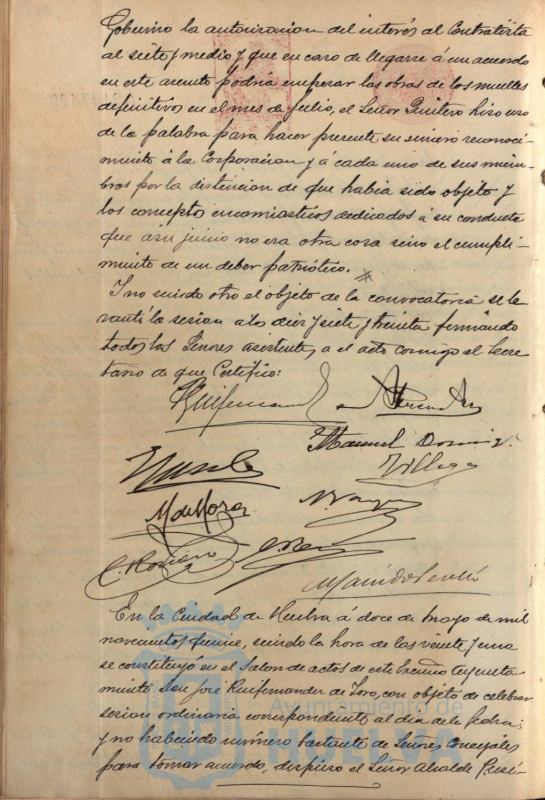 Gobierno la autorizacion del interés al Contratista
al siete y medio y que en caso de llegarse á un acuerdo
en este asunto podria empezar las obras de los muelles
definitivos en el mes de Julio, el Señor Quintero hizo uso
de la palabra para hacer presente su sincero reconoci-
miento á la Corporacion y á cada uno de sus miem-
bros por la distincion de que habia sido objeto y
los concepto encomiasticos dedicados á su conducta
que á su juicio no era otra cosa sino el cumpli-
miento de un deber patriótico.
Y no siendo otro el objeto de la convocatoria se le
vantó la sesion a las diez y siete y treinta firmando
todos los Señores asistentes a el acto conmigo el Secre
tario de que Certifico:
Manuel Domin
M de Mora
En la Ciudad de Huelva á doce de mayo de mil
novecientos quince, siendo la hora de las veinte y una
se constituyó en el Salon de actos de este Excmo Ayunta
miento Don José Ruifernandez de Toro, con objeto de celebrar
sesion ordinaria correspondiente al dia de la fecha;
y no habiendo número bastante de Señores Concejales
para tomar acuerdo, dispuso el Señor Alcalde Presi-
Ayuntamiento de
HUELVA